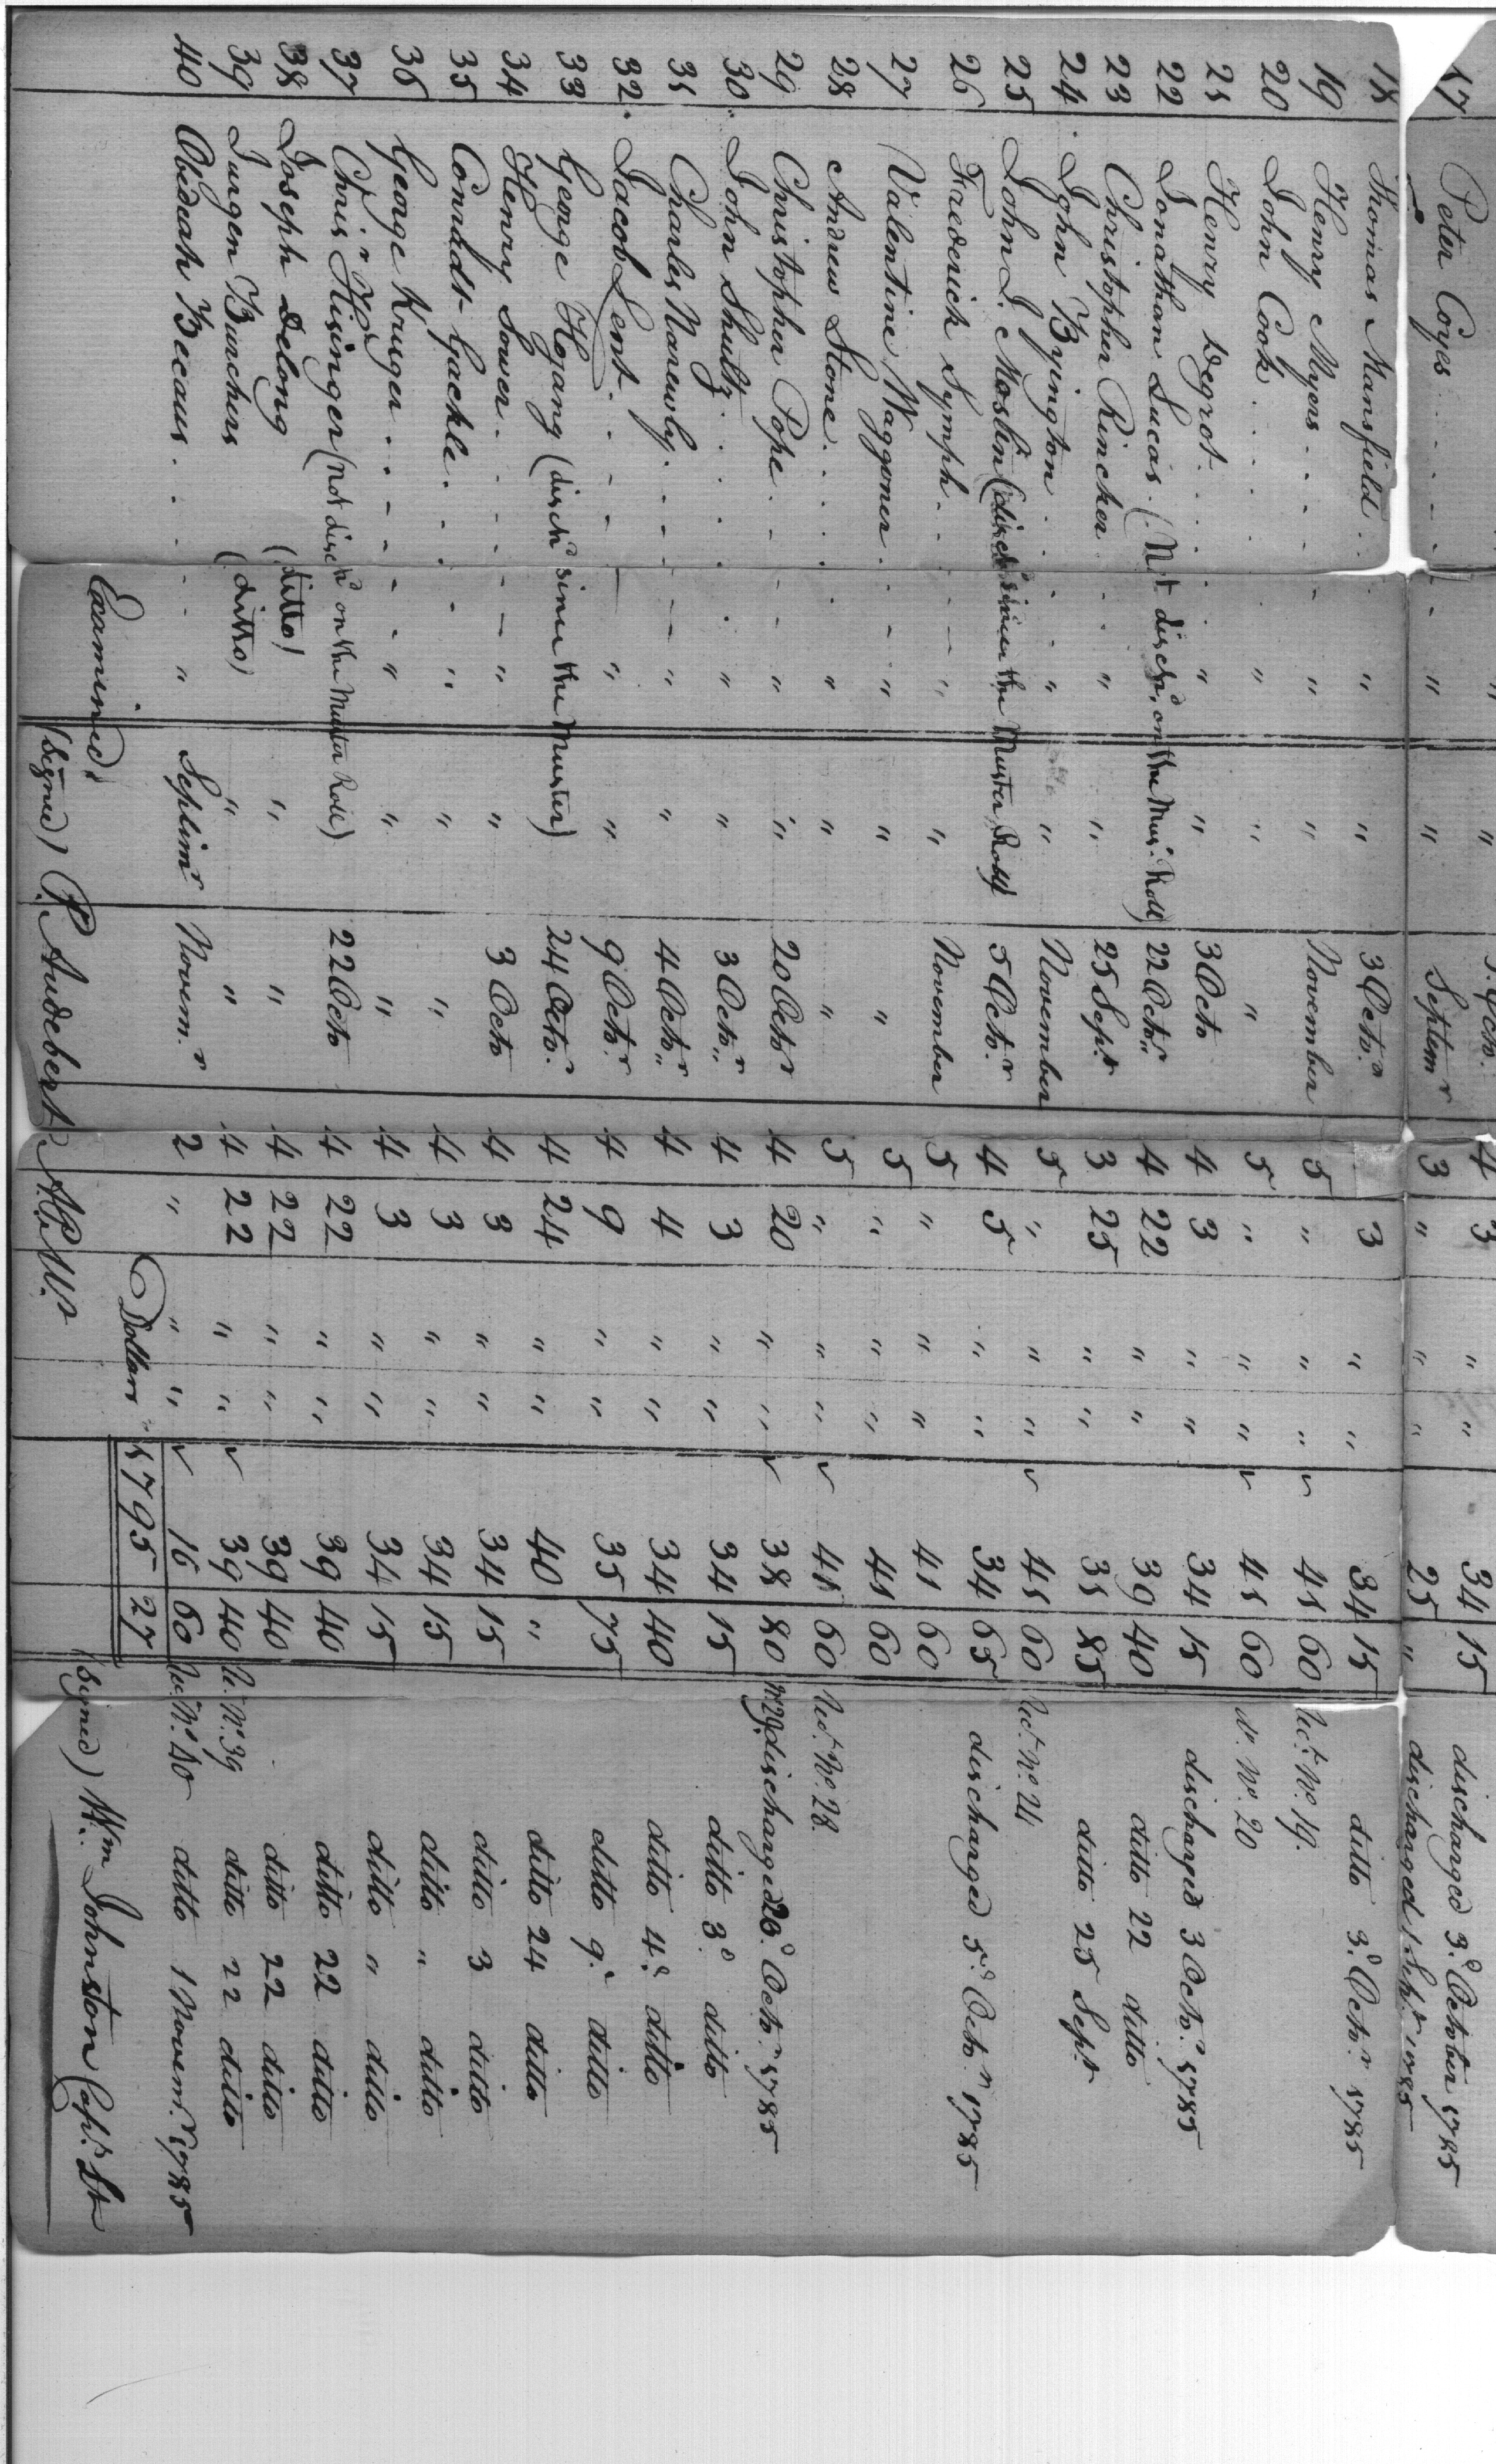 " " 3. Octo. 4 3 " " 34 15 discharged 3.d October 1785
17 Peter Coyes " " Septem.r 3 " " " 25 " discharged 1. Sep.r 1785
18 Thomas Mansfield " " 3 Octo.r 3 " " 34 15 ditto 3.d Octo.r 1785
19 Henry Myers " " November 5 " " " 41 60 Rec.t No. 19.
20 John Cook " " " 5 " " " 41 60 do. No. 20
21 Henry Degrot " " 3 Octo 4 3 " " 34 15 discharged 3 Octo.r 1785
22 Jonathan Lucas (Not disch.d on the Mus.r Roll) 22 Octo.r 4 22 " " 39 40 ditto 22 ditto
23 Christopher Rincker " " 25 Sep.r 3 25 " " 31 85 ditto 25 Sep.r
24 John Byington " " November 5 " " " 41 60 Rec.t No. 24
25 John J. Moslin (disch.d since the Muster Roll) 5 Octo.r 4 5 " " 34 65 discharged 5.d Octo.r 1785
26 Frederick Symph " " November 5 " " " 41 60
27 Valentine Waggoner " " " 5 " " " 41 60
28 Andrew Stone " " " 5 " " " 41 60 Rec.t No. 28.
29 Christopher Pope " " 20 Octo.r 4 20 " " 38 80 No. 29. discharged 20.d Octo.r 1785
30 John Shultz " " 3 Octo.r 4 3 " " 34 15 ditto 3.d ditto
31 Charles Narewly " " 4 Octo.r 4 4 " " 34 40 ditto 4.d ditto
32 Jacob Lent " " 9 Octo.r 4 9 " " 35 75 ditto 9. ditto
33 George Hogang (disch.d since the Muster) 24 Octo.r 4 24 " " 40 " ditto 24 ditto
34 Henry Sower " " 3 Octo 4 3 " " 34 15 ditto 3 ditto
35 Conradt Gackle " " " 4 3 " " 34 15 ditto " ditto
36 George Kruger " " " 4 3 " " 34 15 ditto " ditto
37 Chris.r Hisinger (not disch.d on the Muster Roll) 22 Octo 4 22 " " 39 40 ditto 22 ditto
38 Joseph Delong (ditto) " " 4 22 " " 39 40 ditto 22 ditto
39 Jurgen Burchers (ditto) " " 4 22 " " 39 40 Re. No. 39 ditto 22 ditto
40 Obediah Becaus " Septim.r Novem.r 2 " " " 16 60 Re. No. 40 ditto 1 Novem.r 1785
Dollars 1795 27
Examined
(signed) P. Audebert A.C.M. (signed) Wm. Johnston Cap.t Lt